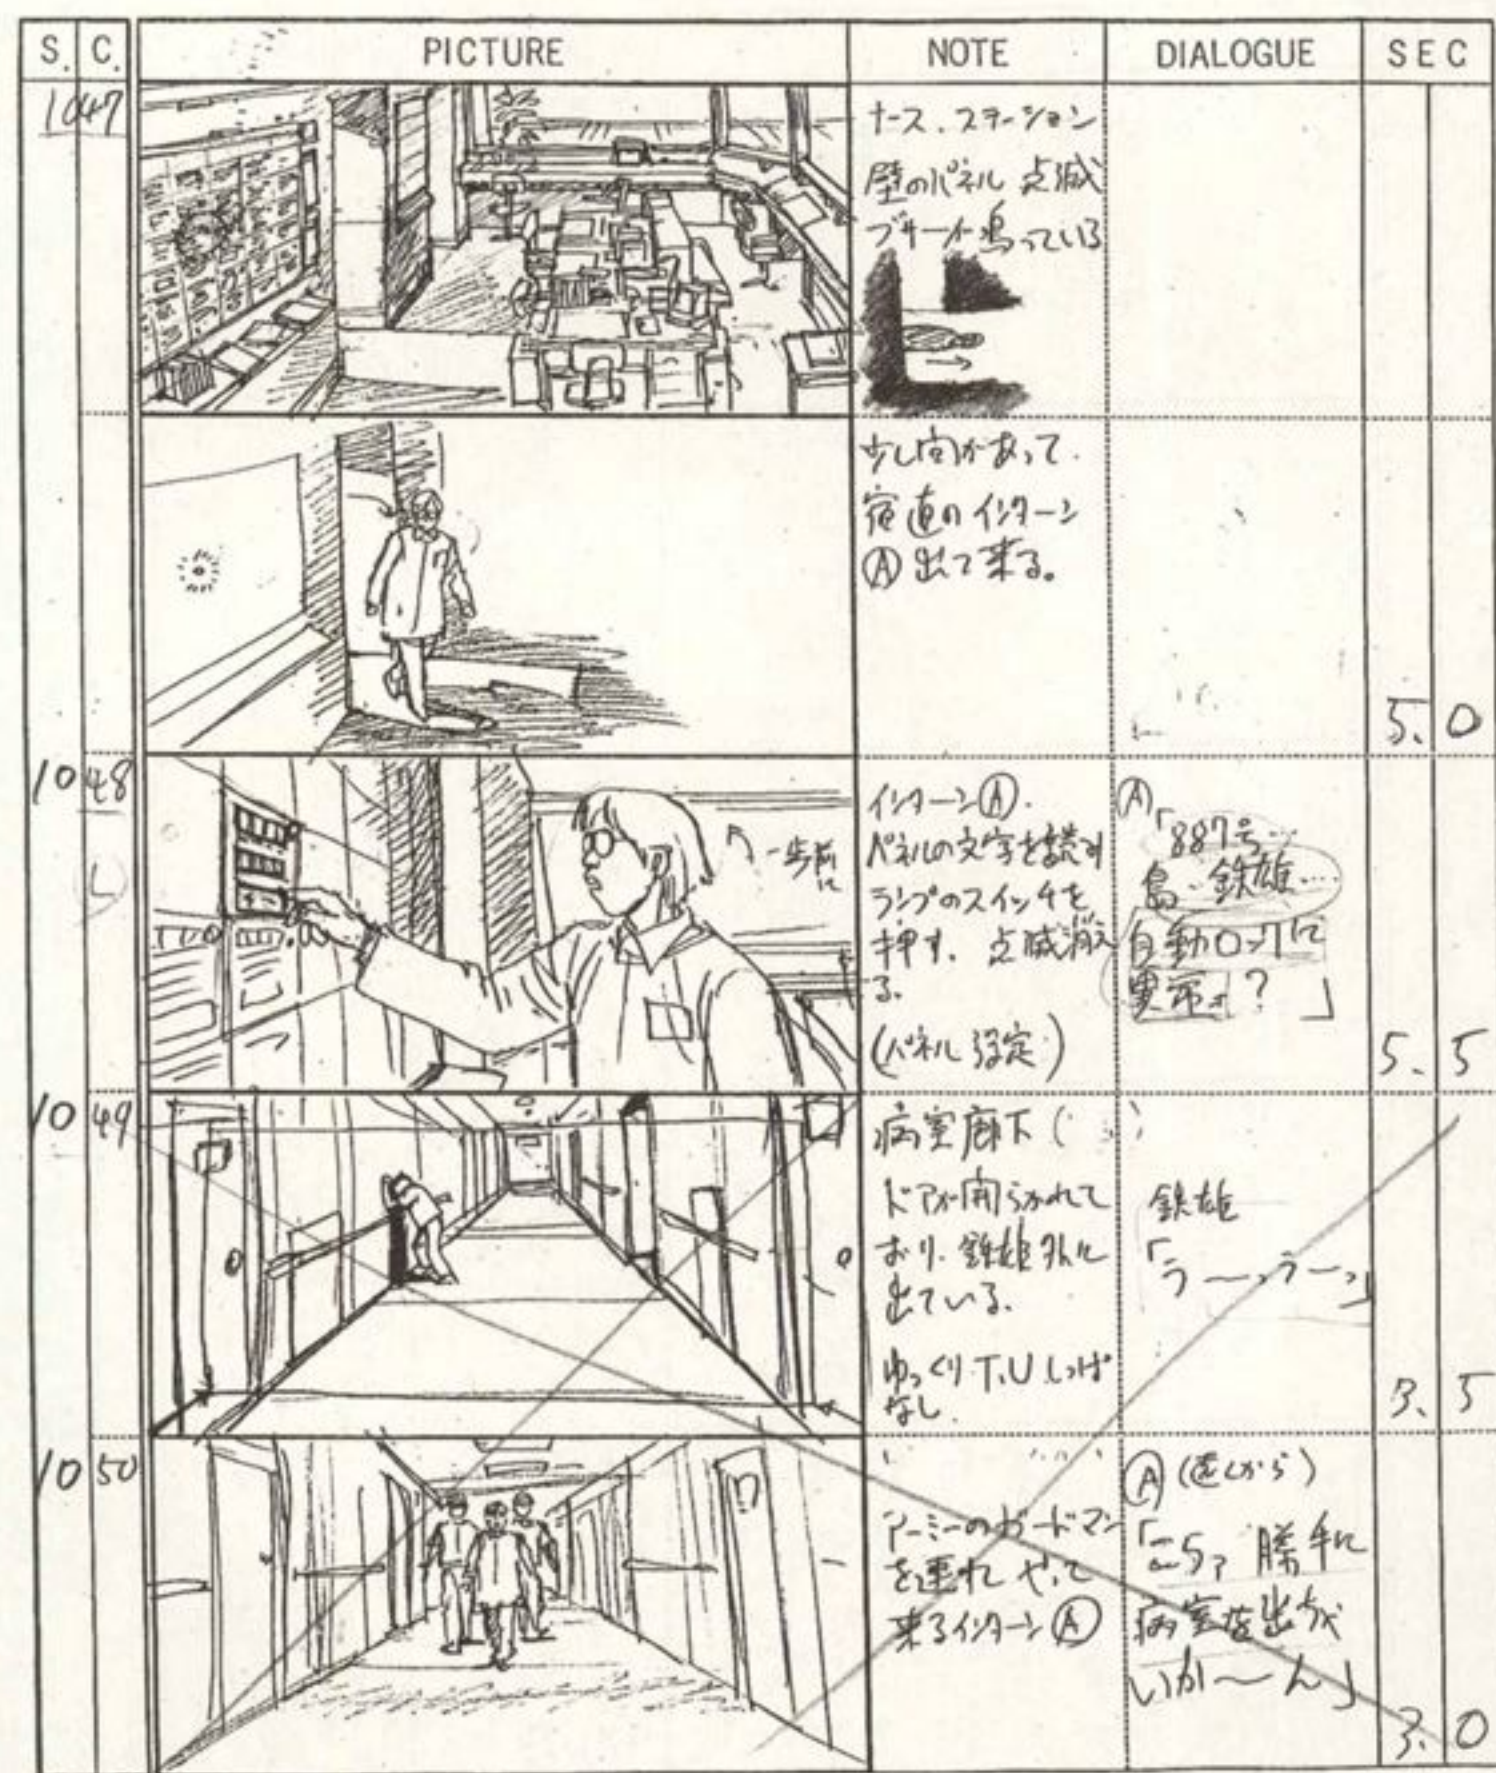 S. C. PICTURE NOTE DIALOGUE SEC
10 47
ナース.ステーション
壁のパネル 点滅
ブザーが鳴っている
少し間があって.
宿直のインターン
Ⓐ 出て来る。
5. 0
10 48
L
一歩前に
インターンⒶ.
パネルの文字を読み
ランプのスイッチを
押す. 点滅消え
る.
(パネル設定)
Ⓐ
「887号…
島‥鉄雄‥‥
自動ロックに
異常が?」
5. 5
10 49
病室廊下(
ドアが開らかれて
おり. 鉄雄外に
出ている.
ゆっくりT.Uしっぱ
なし.
鉄雄
「うー〜っうーっ」
3. 5
10 50
アーミーのガードマン
を連れ やって
来るインターンⒶ
Ⓐ(遠くから)
「こらァ 勝手に
病室を出ちゃ
いか〜ん」
3. 0